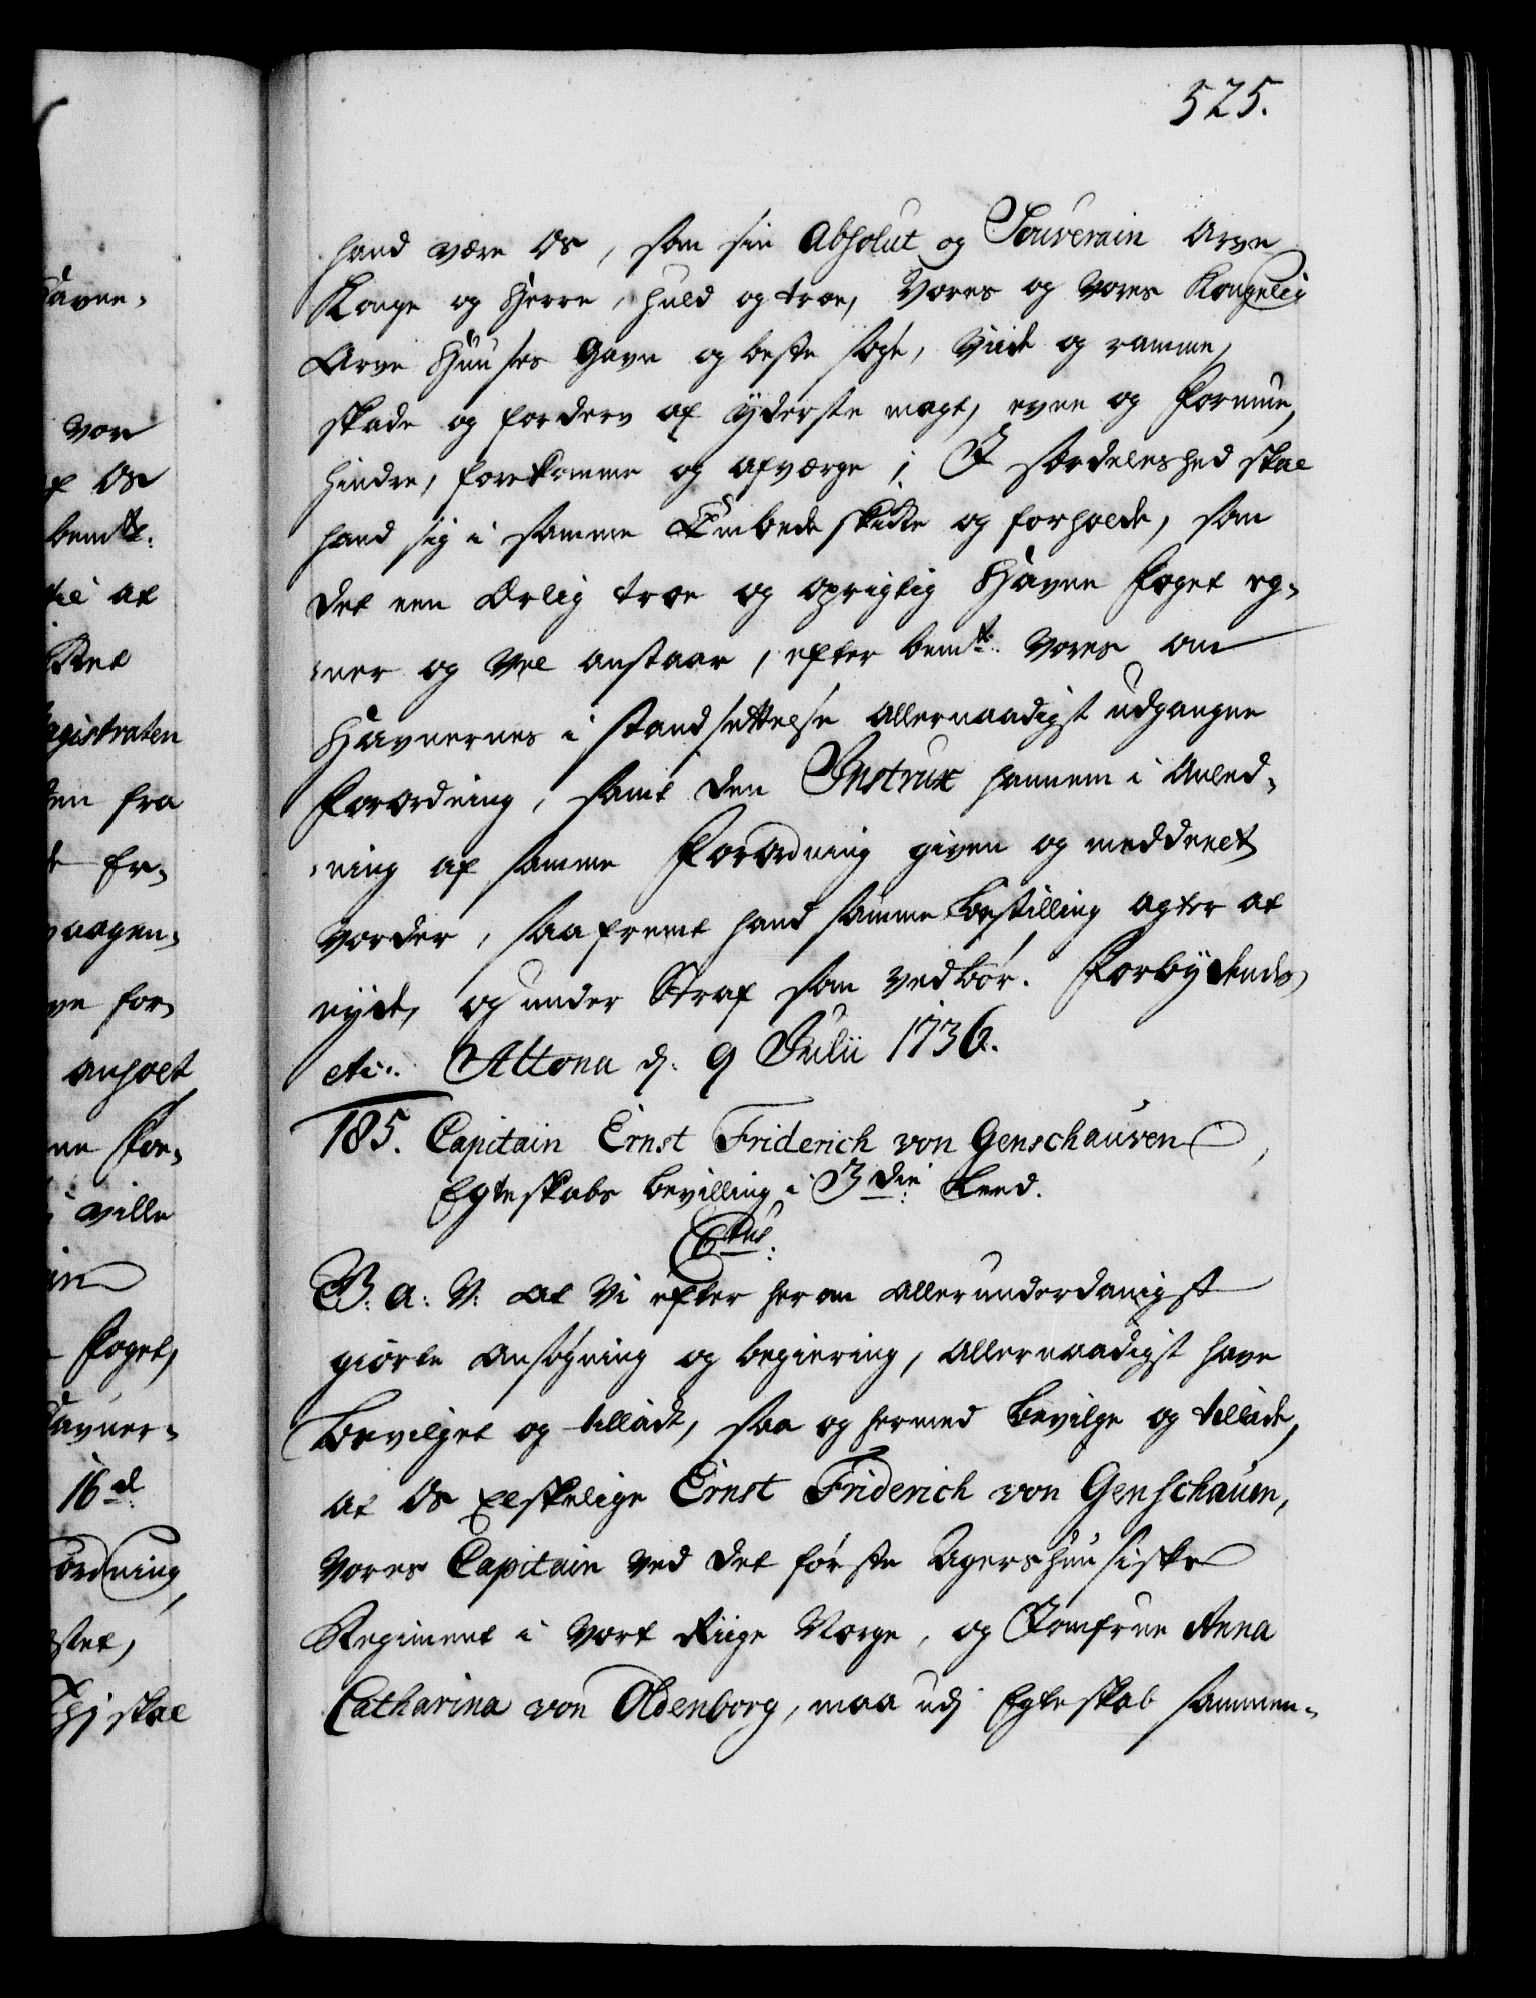 525.
hand være Os, som sin Absolut og Souverain Arve
Konge og Herre, huld og troe, Vores og Vores Kongelig
Arve Huuses Gavn og beste søge, Viide og ramme,
skade og forderv af yderste magt, evne og Formue,
hindre, forekomme og afværge; I særdeleshed skal
hand sig i samme Embede skikke og forholde, som
det een Ærlig troe og oprigtig Havne Foget eg-
ner og vel anstaar, efter bemte: Vores om
Havnernes i stand settelse allernaadigst udgangne
Forordning, samt den Instrux hannem i Anled-
ning af samme Forordning given og meddeelt
vorder, saafremt hand samme Bestilling agter at
nyde, og under Straf som vedbør. Forbydendes
etc: Altona d: 9 Julii 1736.
185. Capitain Ernst Friderich von Genschauven
Egteskabs bevilling i 3die Leed.
C6tus.
G: a: V: at Vi efter herom allerunderdanigst
giorte Ansøgning og begiering, allernaadigst have
bevilget og tilladt, saa og hermed bevilge og tillade,
at Os Elskelige Ernst Friderich von Genschauen,
Vores Capitain ved det første Agershuusiske
Regiment i Vort Riige Norge, og Jomfrue Anna
Catharina von Oldenborg, maa udj Egteskab sammen-
avne-
vor
f Os
bemte:
til at
ket
agistraten
en fra
t Er-
vaagen-
ve for
anholt
ne For-
ville
in
Foget,
avner-
16 d
ordning,
stet,
skal